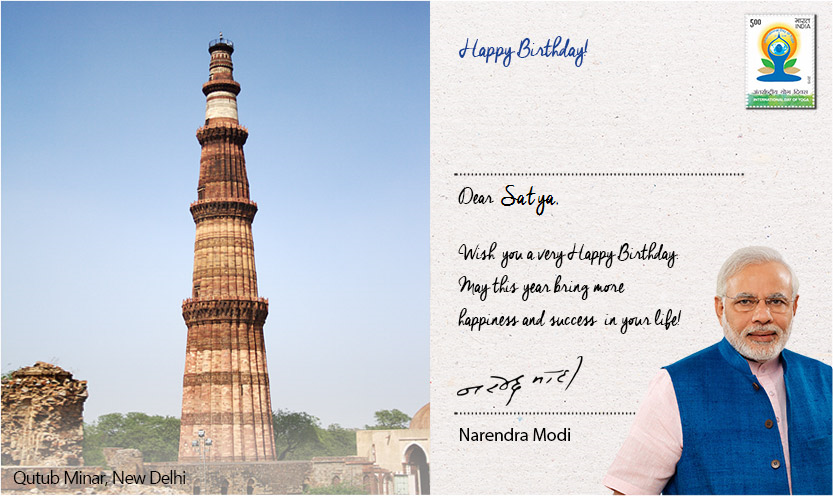 Happy Birthday!
5.00
भारत
INDIA
अंतर्राष्ट्रीय योग दिवस
INTERNATIONAL DAY OF YOGA
Dear Satya,
Wish you a very Happy Birthday.
May this year bring more
happiness and success in your life!
नरेन्द्र मोदी
Narendra Modi
Qutub Minar, New Delhi